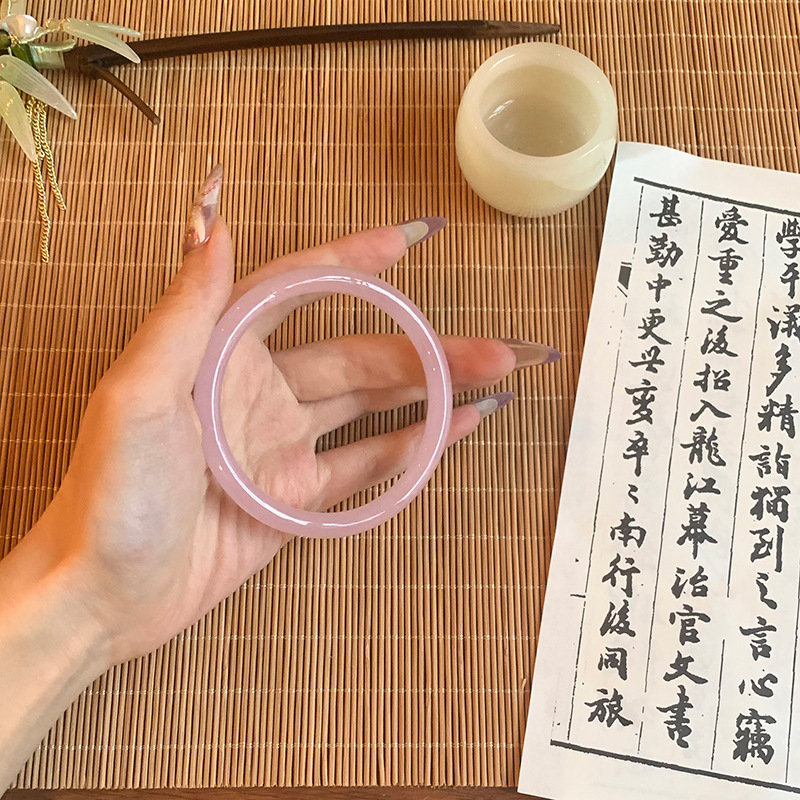 學平滿多精詣獨到之言心竊
愛重之後招入龍江幕治官文書
甚勤中更世變卒卒南行後同旅